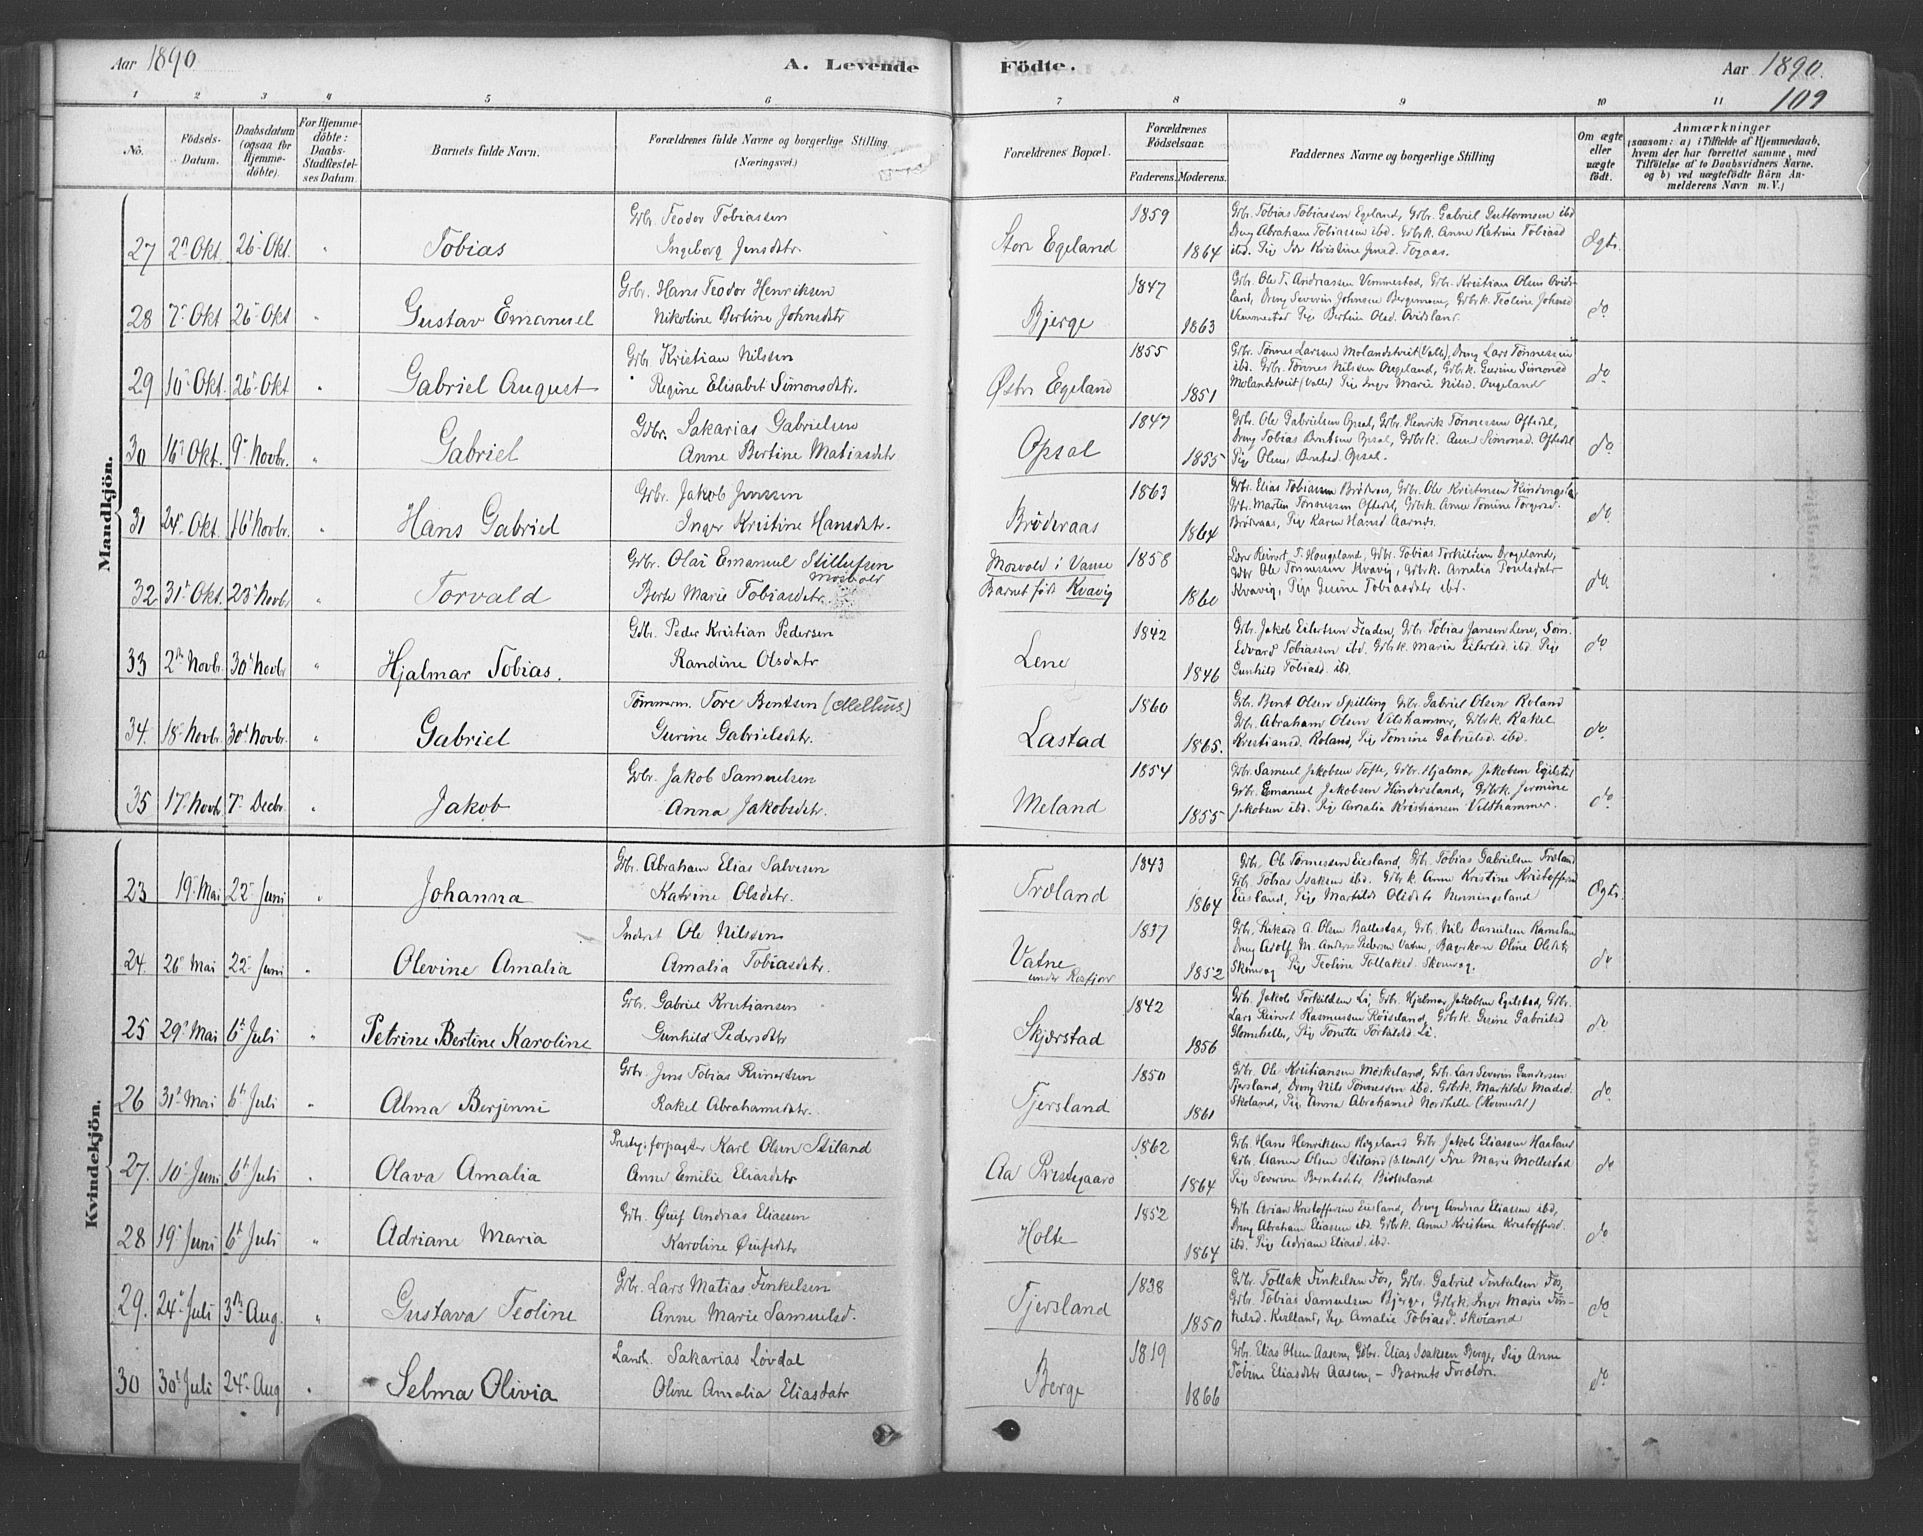 Aar 1890
A. Levende
Födte.
Aar 1890.
109
1 2 3 4 5 6 7 8 9 10 11
No.
Födsels-Datum.
Daabsdatum (ogsaa for Hjemmedöbte).
For Hjemmedöbte: Daabs-Stadfæstelses Datum.
Barnets fulde Navn.
Forældrenes fulde Navne og borgerlige Stilling (Næringsvei.)
Forældrenes Bopæl.
Forældrenes Födselsaar.
Faderens. Moderens.
Faddernes Navne og borgerlige Stilling
Om ægte eller uægte födt.
Anmærkninger
(saasom: a) i Tilfælde af Hjemmedaab, hvem der har forrettet samme, med Tilföielse af to Daabsvidners Navne, og b) ved uægtefödte Börn Anmelderens Navn m. V.)
Mandkjön.
27 2n Okt. 26 Okt. " Tobias
Gdbr. Teodor Tobiassen
Ingeborg Jensdatr.
Stor Egeland 1859 1864
Gdbr. Tobias Tobiassen Egeland, Gdbr. Gabriel Guttormsen ibd
Dreng Abraham Tobiassen ibd. Gdbrk. Anne Katrine Tobiasd
ibd. Pige Kristine Jensd.
Ægte.
28 7 Okt 26 Okt " Gustav Emanuel
Gdbr. Hans Teodor Henriksen
Nikoline Bertine Johnsdatr
Bjerge 1847 1863
Gdbr. Ole T. Andreassen Vemmestad, Gdbr. Kristian Olsen Ovids-
land, Dreng Severin Johnsen Gdbrk. Teoline Johnsd
Vemmestad Pige Bertine Olsd. Ovidsland.
do
29 10 Okt. 26 Okt " Gabriel August
Gdbr. Kristian Nilssen
Regine Elisabet Simonsdatr.
Østre Egeland 1855 1851
Gdbr. Tønnes Larssen Molandsveit (Valle), Dreng Lars Tønnessen
ibd. Gdbr. Tønnes Nilssen Augeland, Gdbrk. Gurine Simonsd
Molandsveit (Valle) Pige Inger Marie Nilsd. Augeland
do
30 16 Okt. 9 Novbr. " Gabriel
Gdbr. Sakarias Gabrielsen
Anne Bertine Matiasdatr
Opsal 1847 1855
Gdbr. Ole Gabrielsen Opsal, Gdbr. Henrik Tønnessen Oftedal,
Dreng Tobias Bentsen Opsal, Gdbrk. Anne Simonsd. Oftedal
Pige Oline Bentsd. Opsal.
do
31 24 Okt. 16 Novbr. " Hans Gabriel
Gdbr. Jakob Jenssen
Inger Kristine Hansdatr.
Brøderaas 1863 1864
Gdbr. Elias Tobiassen Brøderaas, Gdbr. Ole Kristensen
Gdbr. Martin Tønnessen Oftedal, Gdbrk. Anne Tomine Torgersd.
Brøderaas, Pige Karen Hansd Aarnes.
do
32 31 Okt. 23 Novbr " Torvald
Gdbr. Olai Emanuel Stillufsen Mosvold
Berte Marie Tobiasdatr.
Mosvold i Vanse
Barnet født Kvavig 1858 1860
Reinert T. Haugeland, Gdbr. Tobias Torkildsen Drageland,
Gdbr Ole Tønnessen Kvavig, Gdbrk. Amalia Poulsdatr
Kvavig, Pige Gesine Tobiasdatr ibd.
do
33 2 Novbr. 30 Novbr " Hjalmar Tobias.
Gdbr. Peder Kristian Pedersen
Randine Olsdatr
Lene 1842 1846
Gdbr. Jakob Eilertsen Fladen, Gdbr. Tobias Jansen Lene, Søm.
Edvard Tobiassen ibd. Gdbrk. Maria Eilertsd. ibd. Pige
Gunhild Tobiasd. ibd.
do
34. 18 Novbr. 30 Novbr. " Gabriel
Tømmerm. Tore Bentsen (Mellius)
Gurine Gabrielsdatr.
Lastad 1860 1865.
Gdbr. Bent Olsen Spilling Gdbr. Gabriel Olsen Roland
Gdbr. Abraham Olsen Vilshammer, Gdbrk. Rakel
Kristiansd. Roland, Pige Tomine Gabrielsd. ibd.
do.
35 17 Novb. 7 Decbr " Jakob
Gdbr. Jakob Samuelsen
Anna Jakobsdatr.
Meland 1854 1855
Gdbr. Samuel Jakobsen Tofte, Gdbr. Hjalmar Jakobsen Egilstad
Gdbr. Emanuel Jakobsen Hindersland, Gdbrk. Jermine
Jakobsen ibd. Pige Amalia Kristiansen Vilshammer.
do
Kvindekjön.
23 19 Mai 22 Juni " Johanna
Gdbr. Abraham Elias Salvesen
Katrine Olsdatr.
Træland 1843 1864
Gdbr. Ole Tønnessen Eiesland, Gdbr. Tobias Gabrielsen Træland
Gdbr. Tobias Isaksen ibd. Gdbrk. Anne Kristine Kristoffersd
Eiesland, Pige Martilde Olsdatr
Ægte.
24. 26 Mai 22 Juni " Olevine Amalia
Inderst Ole Nilssen
Amalia Tobiasdatr.
Vatne
under Rosfjord 1837 1852
Gdbr. Rikard A. Olsen Ballestad, Gdbr. Nils Danielsen
Dreng Adolf M. Anders Pedersen Vatne, Bagerkone Oline Olsdtr
Skomrag Pige Teoline Tollaksd. Skomrag.
do
25 29 Mai 6 Juli " Petrine Bertine Karoline
Gdbr. Gabriel Kristiansen
Gunhild Pedersdatr
Skjærstad 1842 1856
Gdbr. Jakob Torkildsen Li, Gdbr. Hjalmar Jakobsen Egilstad, Gdbr.
Lars Reinert Rasmussen Røiseland, Gdbrk. Gesine Gabrielsd
Glomehelle, Pige Tonette Torkildsd Li.
do
26 31 Mai 6 Juli " Alma Berjenni
Gdbr. Jens Tobias Reinertsen
Rakel Abrahamsdatr.
Fjersland 1850 1861
Gdbr. Ole Kristiansen Møskeland, Gdbr. Lars Severin Gundersen
Fjersland, Dreng Nils Tønnessen ibd. Gdbrk. Martilde Madsd.
Skoland, Pige Anna Abrahamsd Nordhelle (Kvinesdal)
do
27. 10 Juni 6 Juli " Olava Amalia
Prestg.forpagter Karl Olsen Stiland
Anne Emilie Eliasdatr
Aa Prestegaard 1862 1864
Gdbr. Hans Henriksen Høgeland Gdbr. Jakob Eliassen Haaland
Gdbr. Aanen Olsen Stiland Marie Møllestad
Pige Severine Berntsdatr Birkeland
do
28 19 Juni 6 Juli " Adriane Maria
Gdbr. Øuf Andreas Eliassen
Karoline Øufsdatr
Holte 1852 1864
Gdbr. Arian Kristoffersen Eiesland, Dreng Andreas Eliassen ibd,
Dreng Abraham Eliassen ibd. Gdbrk. Anne Kristine Kristoffersd.
ibd. Pige Adriane Eliasd. ibd.
do
29. 24 Juli 3 Aug. " Gustava Teoline
Gdbr. Lars Matias Finkelsen
Anne Marie Samuelsd.
Fjersland 1838 1850
Gdbr. Tollak Finkelsen Fos, Gdbr. Gabriel Finkelsen Fos,
Gdbr. Tobias Samuelsen Bjerge, Gdbrk. Inger Marie Fin-
kelsd. Kvelland, Pige Amalie Tobiasd.
do
30 30 Juli 24 Aug " Selma Olivia
Landh. Sakarias Løvdal
Oline Amalia Eliasdatr
Berge 1819 1866
Gdbr. Elias Olsen Aasen, Gdbr. Elias Isaksen Berge, Pige Anne
Tobine Eliasdatr Aasen, – Barnets Forældre.
do